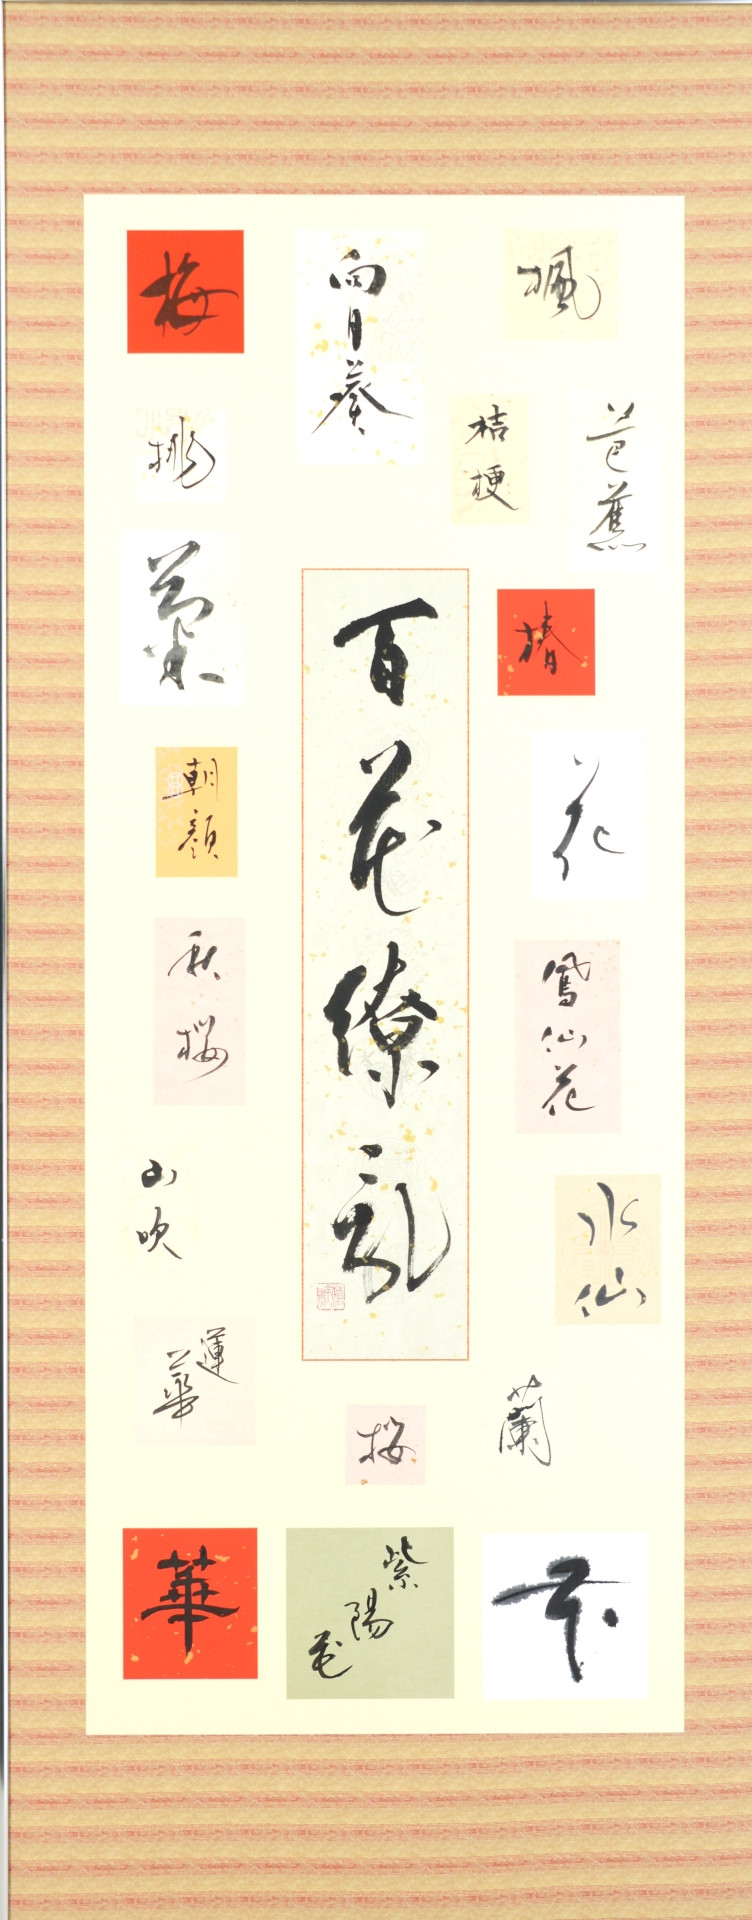 楓
芭蕉
桔梗
向日葵
梅
桃
菊
椿
花
鳳仙花
水仙
蘭
百花繚乱
朝顔
秋桜
山吹
蓮華
桜
花
紫陽花
華